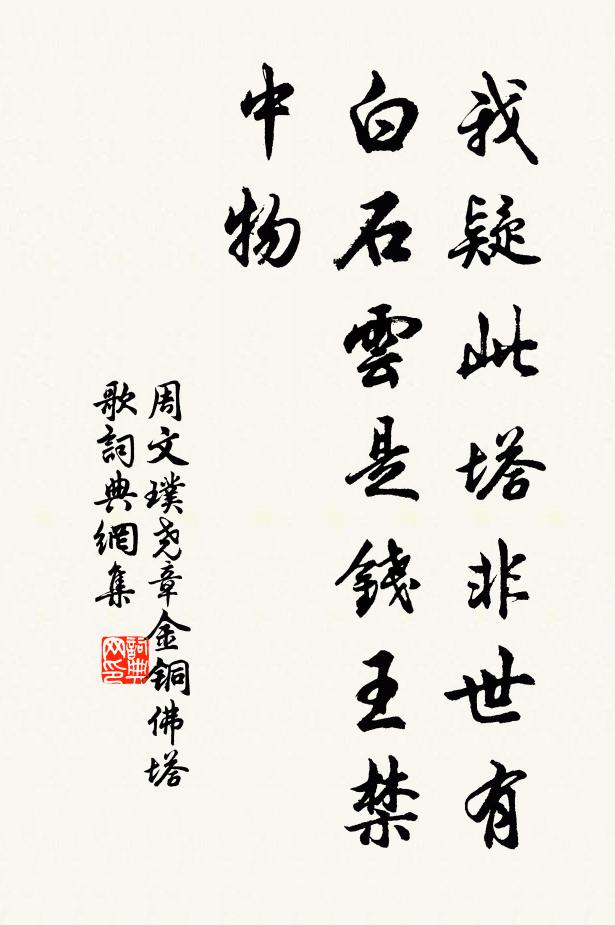 我疑此塔非世有
白石雲是錢王禁
中物
周文璞尧章金銅佛塔
歌詞典網集
詞典
网印